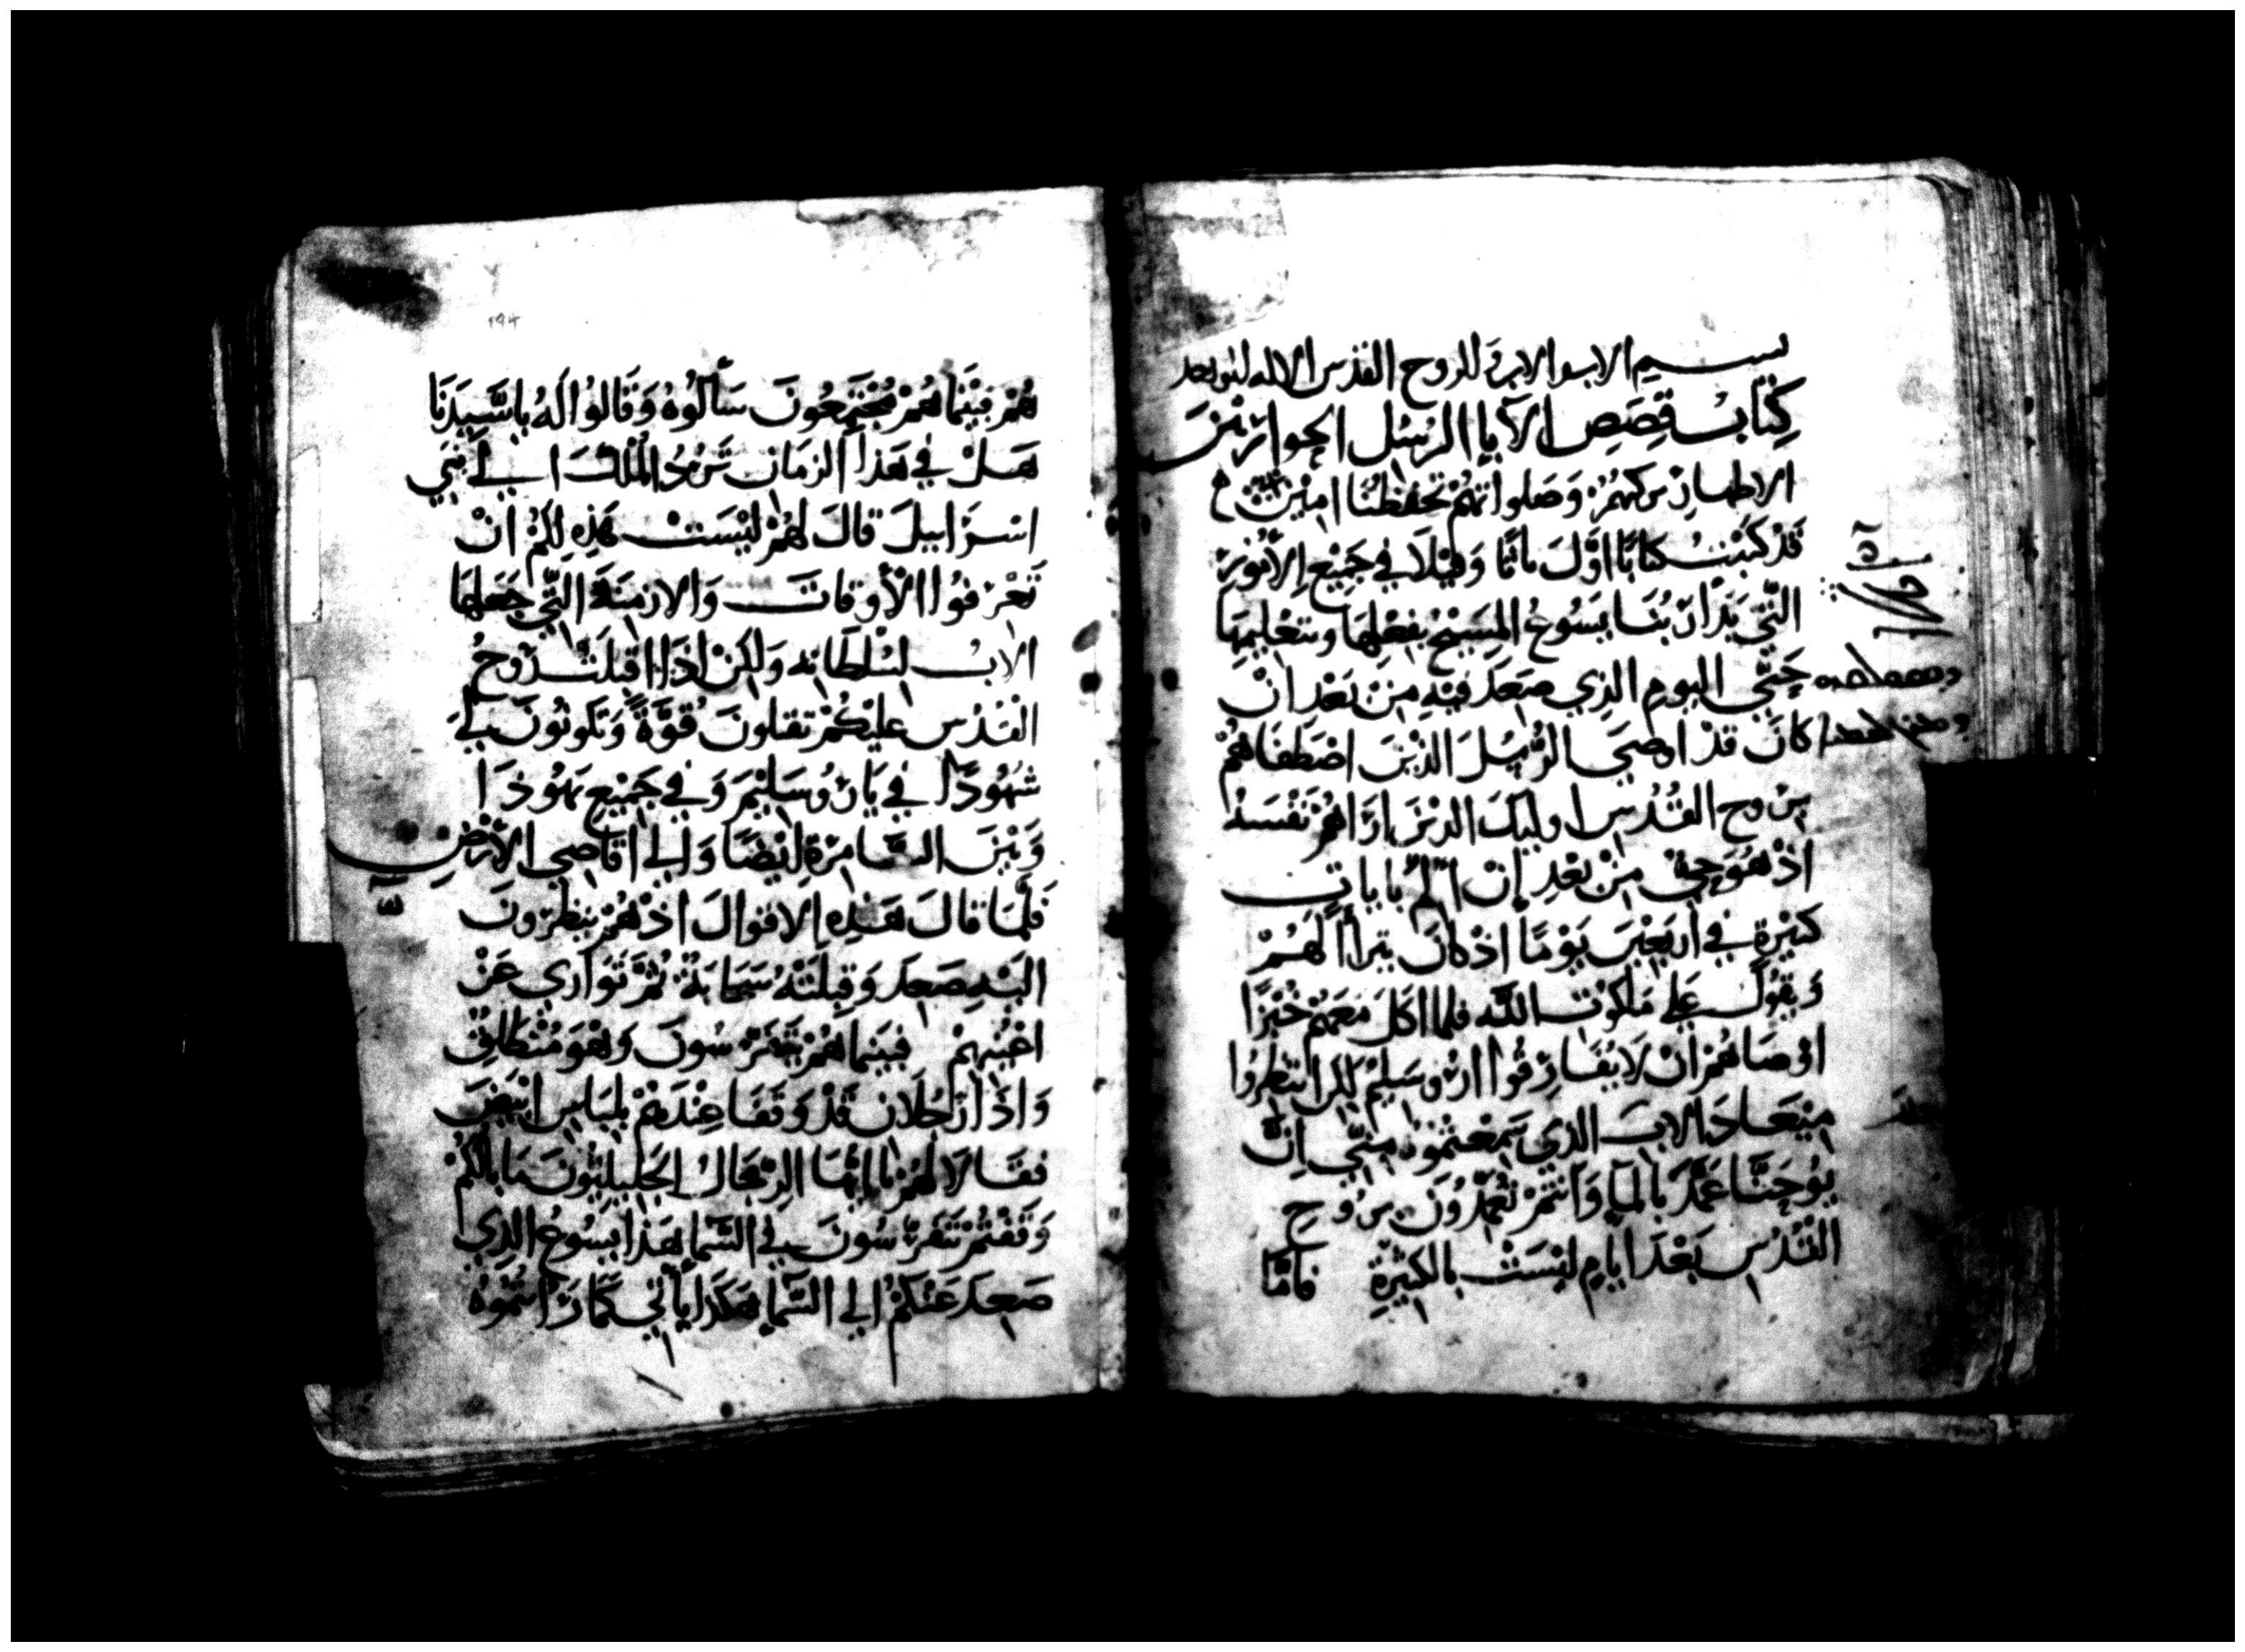 بسم الاب والابن والروح القدس الاله
كِتَابُ قِصَصِ الآبا الرُسُل الحواريْنَ
الاطهارْ بركتهُمْ وَصَلواتهُمْ تحفظنَا امِيْن
قَدْ كتَبْتُ كتابًا اوَّلَ ياثا وفيْلاَ فِي جَمِيْع الأُمُورْ
التّي بَدَأ رَبُنَا يَسُوعُ المسِيْحُ بفِعْلِهَا وبتعْلِيمِهَا
حَتّي اليوم الذِي صَعِدَ فيْهِ مِنْ بَعْدِ انْ
كَانَ قَدْ اوصَي الرُسُلَ الذيْنَ اصْطَفَاهُمْ
برُوح القُدُس اوليك الديْنَ ارَاهُمْ نَفْسَهُ
اذْ هُوَ حيٌ مِنْ بَعْدِ إن المُ بايات
كثيْرة فِي ارْبَعِيْنَ يَوْمًا اذْ كانَ يترأا لَهُمْ
وَيقُولُ عَلي مَلكوْت اللّه فلما اكَلَ مَعَهُمْ خُبْزًا
اوْصَاهُمْ انْ لاَ يُفَارِقُوا ارُوسَلِيْمْ لكن انتظرُوا
مِيْعَادَ الاب الذي سَمِعْتُمُوهُ مِنّي انَّ
يُوحَنَّا عَمَّدَ بالما وَانتُمْ تُعَمَّدُونَ برُوحِ
القُدُسِ بَعْدَ ايامٍ ليْسَتْ بالكثيْرَةِ فامّا
هُمْ فبَيْنَمَا هُمْ مُجْتَمِعُونَ سَأَلُوهُ وَقَالُوا لَهُ يا سَيِّدَنَا
هَلْ فِي هَذا الزمَان تَرُدُ المُلْكَ الي بَنِي
اسْرَاييلَ قالَ لهُمْ ليْسَتْ هَذِه لكُمْ انْ
تَعْرِفُوا الأوقاتَ وَالازمِنَةَ التّي جَعَلهَا
الابُ لسُلْطَانِه وَلكِنْ اذَا اقبَلتْ رُوحُ
القُدُس عليْكُمْ تقبلونَ قُوَّةً وَتكونُونَ لي
شهُودًا في يَارُوسَاليْمَ وَفي جَمِيْع يَهُوذَا
وَبَيْنَ السَّامِرَةِ ايْضًا وَالي اقاصِي الأرْضِ
فَلمَّا قالَ هَذِهِ الاقوالَ اذ هُمْ ينظرُونَ
اليْهِ صَعِدَ وَقبِلَتْهُ سَحَابَةٌ ثُمَّ تَوَاري عَنْ
اعْيُنِهِمْ فبينما هُمْ يَتَفرَّسُونَ وَهُوَ مُنْطَلِقٌ
وَاذا رَجُلاَنِ قَدْ وَقَفَا عِنْدَهُمْ بلِبَاسٍ ابْيَضَ
فقَالاَ لهُمْ يا ايُّهَا الرّجَالُ الجَلِيليُّونَ مَا بالُكُمْ
وَقَفْتُمْ تَتَفرَّسُونَ في السَّمَا هَذا يَسُوعُ الذِي
صَعِدَ عَنكُمْ الي السَّمَا هَكَذا يَأتي كمَا رَأيتُمُوهُ